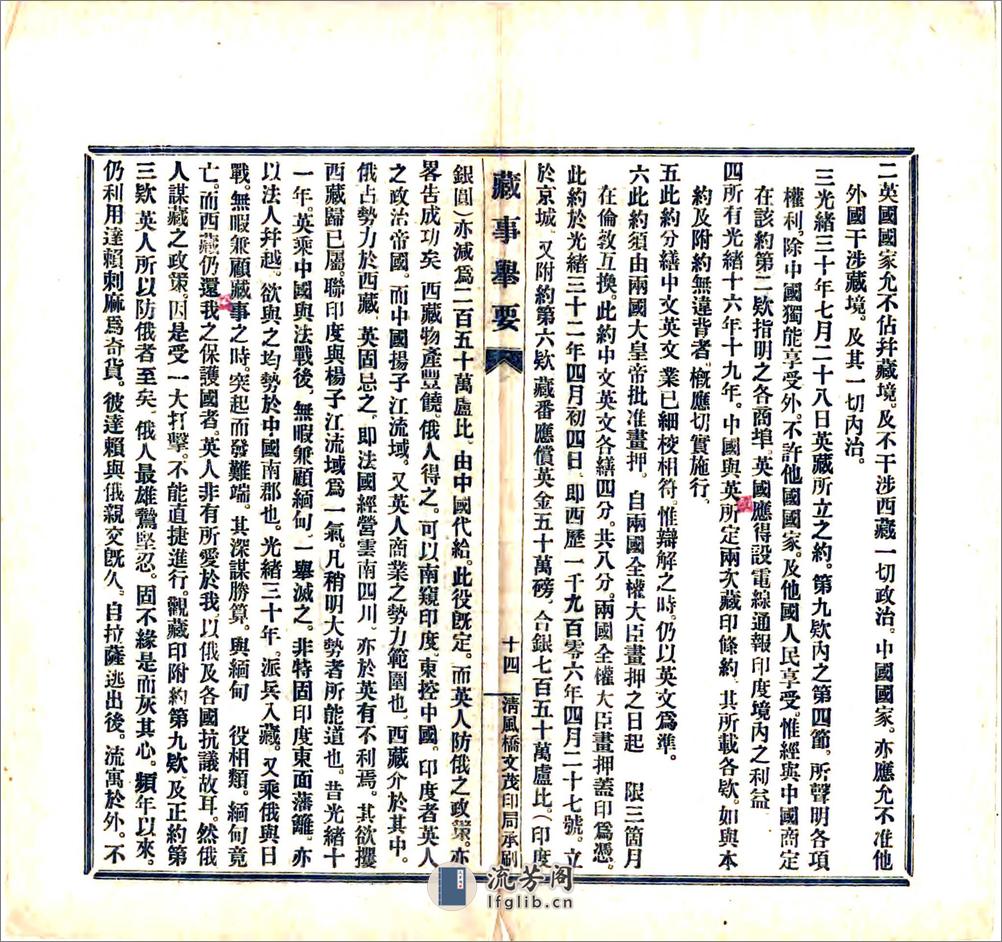 二英國國家允不佔幷藏境。及不干涉西藏一切政治。中國國家。亦應允不准他
外國干涉藏境。及其一切內治。
三光緒三十年七月二十八日英藏所立之約。第九欵內之第四節。所聲明各項
權利。除中國獨能享受外。不許他國國家。及他國人民享受。惟經與中國商定
在該約第二欵指明之各商埠。英國應得設電線通報印度境內之利益
四所有光緒十六年十九年。中國與英國所定兩次藏印條約。其所載各欵。如與本
約及附約無違背者。槪應切實施行、
五此約分繕中文英文 業已細校相符。惟辯解之時。仍以英文爲準。
六此約須由兩國大皇帝批准畫押。 自兩國全權大臣畫押之日起 限三箇月
在倫敦互換。此約中文英文各繕四分。共八分。兩國全權大臣畫押蓋印爲憑。
此約於光緒三十二年四月初四日、卽西歷一千九百零六年四月二十七號。立
於京城、又附約第六欵 藏番應償英金五十萬磅、合銀七百五十萬盧比。（印度
藏事舉要
十四
清風橋文茂印局承刷
銀圓）亦減爲二百五十萬盧比、由中國代給。此役旣定。而英人防俄之政策。亦
畧告成功矣 西藏物產豐饒。俄人得之。可以南窺印度。東控中國。印度者英人
之政治帝國。而中國揚子江流域。又英人商業之勢力範圍也、西藏介於其中。
俄占勢力於西藏、英固忌之、卽法國經營雲南四川。亦於英有不利焉。其欲攫
西藏歸已屬。聯印度與楊子江流域爲一氣。凡稍明大勢者所能道也。昔光緒十
一年。英乘中國與法戰後、無暇兼顧緬甸、一舉滅之。非特固印度東面藩籬。亦
以法人幷越。欲與之均勢於中國南郡也。光緒三十年、派兵入藏。又乘俄與日
戰。無暇兼顧藏事之時。突起而發難端。其深謀勝算。與緬甸 役相類。緬甸竟
亡。而西藏仍還我之保護國者。英人非有所愛於我、以俄及各國抗議故耳。然俄
人謀藏之政策。因是受一大打擊。不能直捷進行。觀藏印附約第九欵、及正約第
三欵 英人所以防俄者至矣、俄人最雄鷙堅忍。固不緣是而灰其心。頻年以來。
仍利用達賴刺麻爲奇貨。彼達賴與俄親交旣久、自拉薩逃出後。流寓於外。不
流芳阁
lfglib.cn